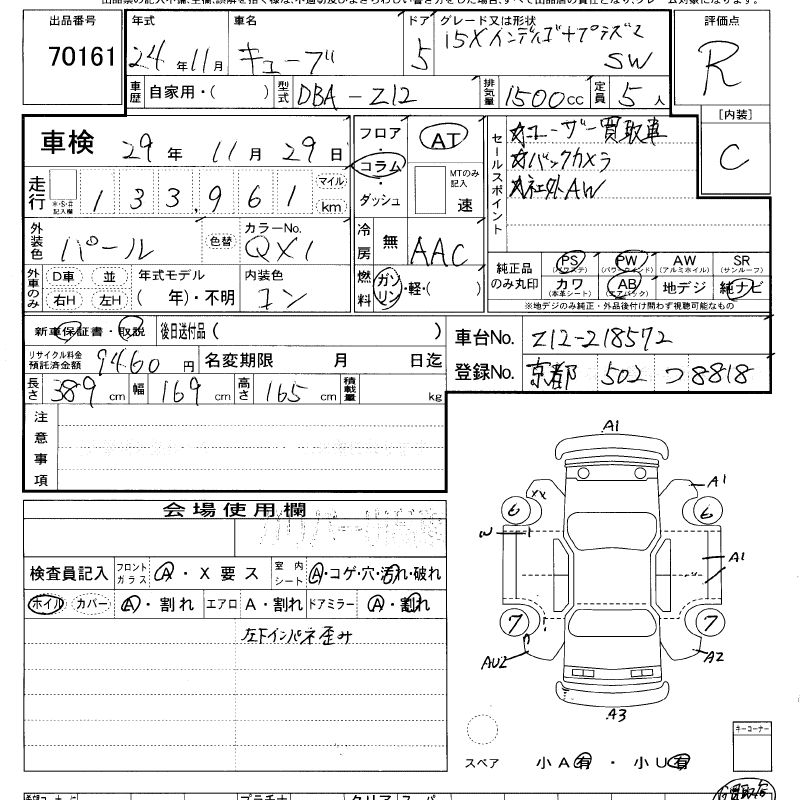 出品番号 年式 車名 ドア グレード又は形状 評価点
70161 24 年 11 月 キューブ 5 15X インディゴ+プラズマ SW R
車歴 自家用・( ) 型式 DBA-Z12 排気量 1500 cc 定員 5 人
[内装]
C
車検 29 年 11 月 29 日 フロア・コラム・ダッシュ AT セールスポイント ☆ユーザー買取車
☆バックカメラ
☆社外AW
走行 *・$・# 記入欄 133,961 マイル km MTのみ記入 速
外装色 パール 色替 カラーNo. QX1 冷房 無 AAC
純正品のみ丸印 PS (パワステ) PW (パワーウインド) AW (アルミホイル) SR (サンルーフ)
カワ (本革シート) AB (エアバック) 地デジ 純ナビ
※地デジのみ純正・外品後付け問わず視聴可能なもの
外車のみ D車 並 右H 左H 年式モデル ( 年)・不明 内装色 コン 燃料 ガソリン・軽・( )
新車保証書・取説 後日送付品 ( )
車台No. Z12-218572
リサイクル料金預託済金額 9460 円 名変期限 月 日迄
登録No. 京都 502 つ 8818
長さ 389 cm 幅 169 cm 高さ 165 cm 積載量 kg
注意事項
会場使用欄
検査員記入 フロントガラス A・X要ス 室内シート A・コゲ・穴・汚れ・破れ
ホイル カバー A・割れ エアロ A・割れ ドアミラー A・割れ
左下インパネ歪み
A1
XX
A1
6 6
W
A1
7 7
AU2 A2
A3
スペア 小A有・小U有
キーコーナー